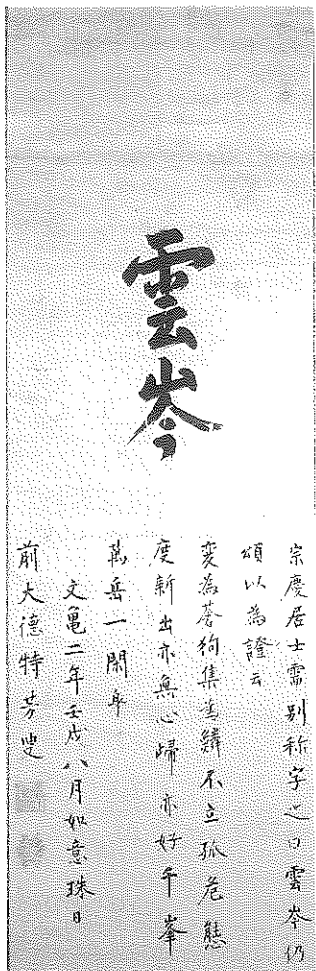 雲岑
宗慶居士需別称字之曰雲岑仍
頌以為證云
変為蒼狗集為鱗不立孤危態
度新出亦無心帰亦好千峯
萬岳一閑身
文亀二年壬戌八月如意珠日
前大德特芳叟